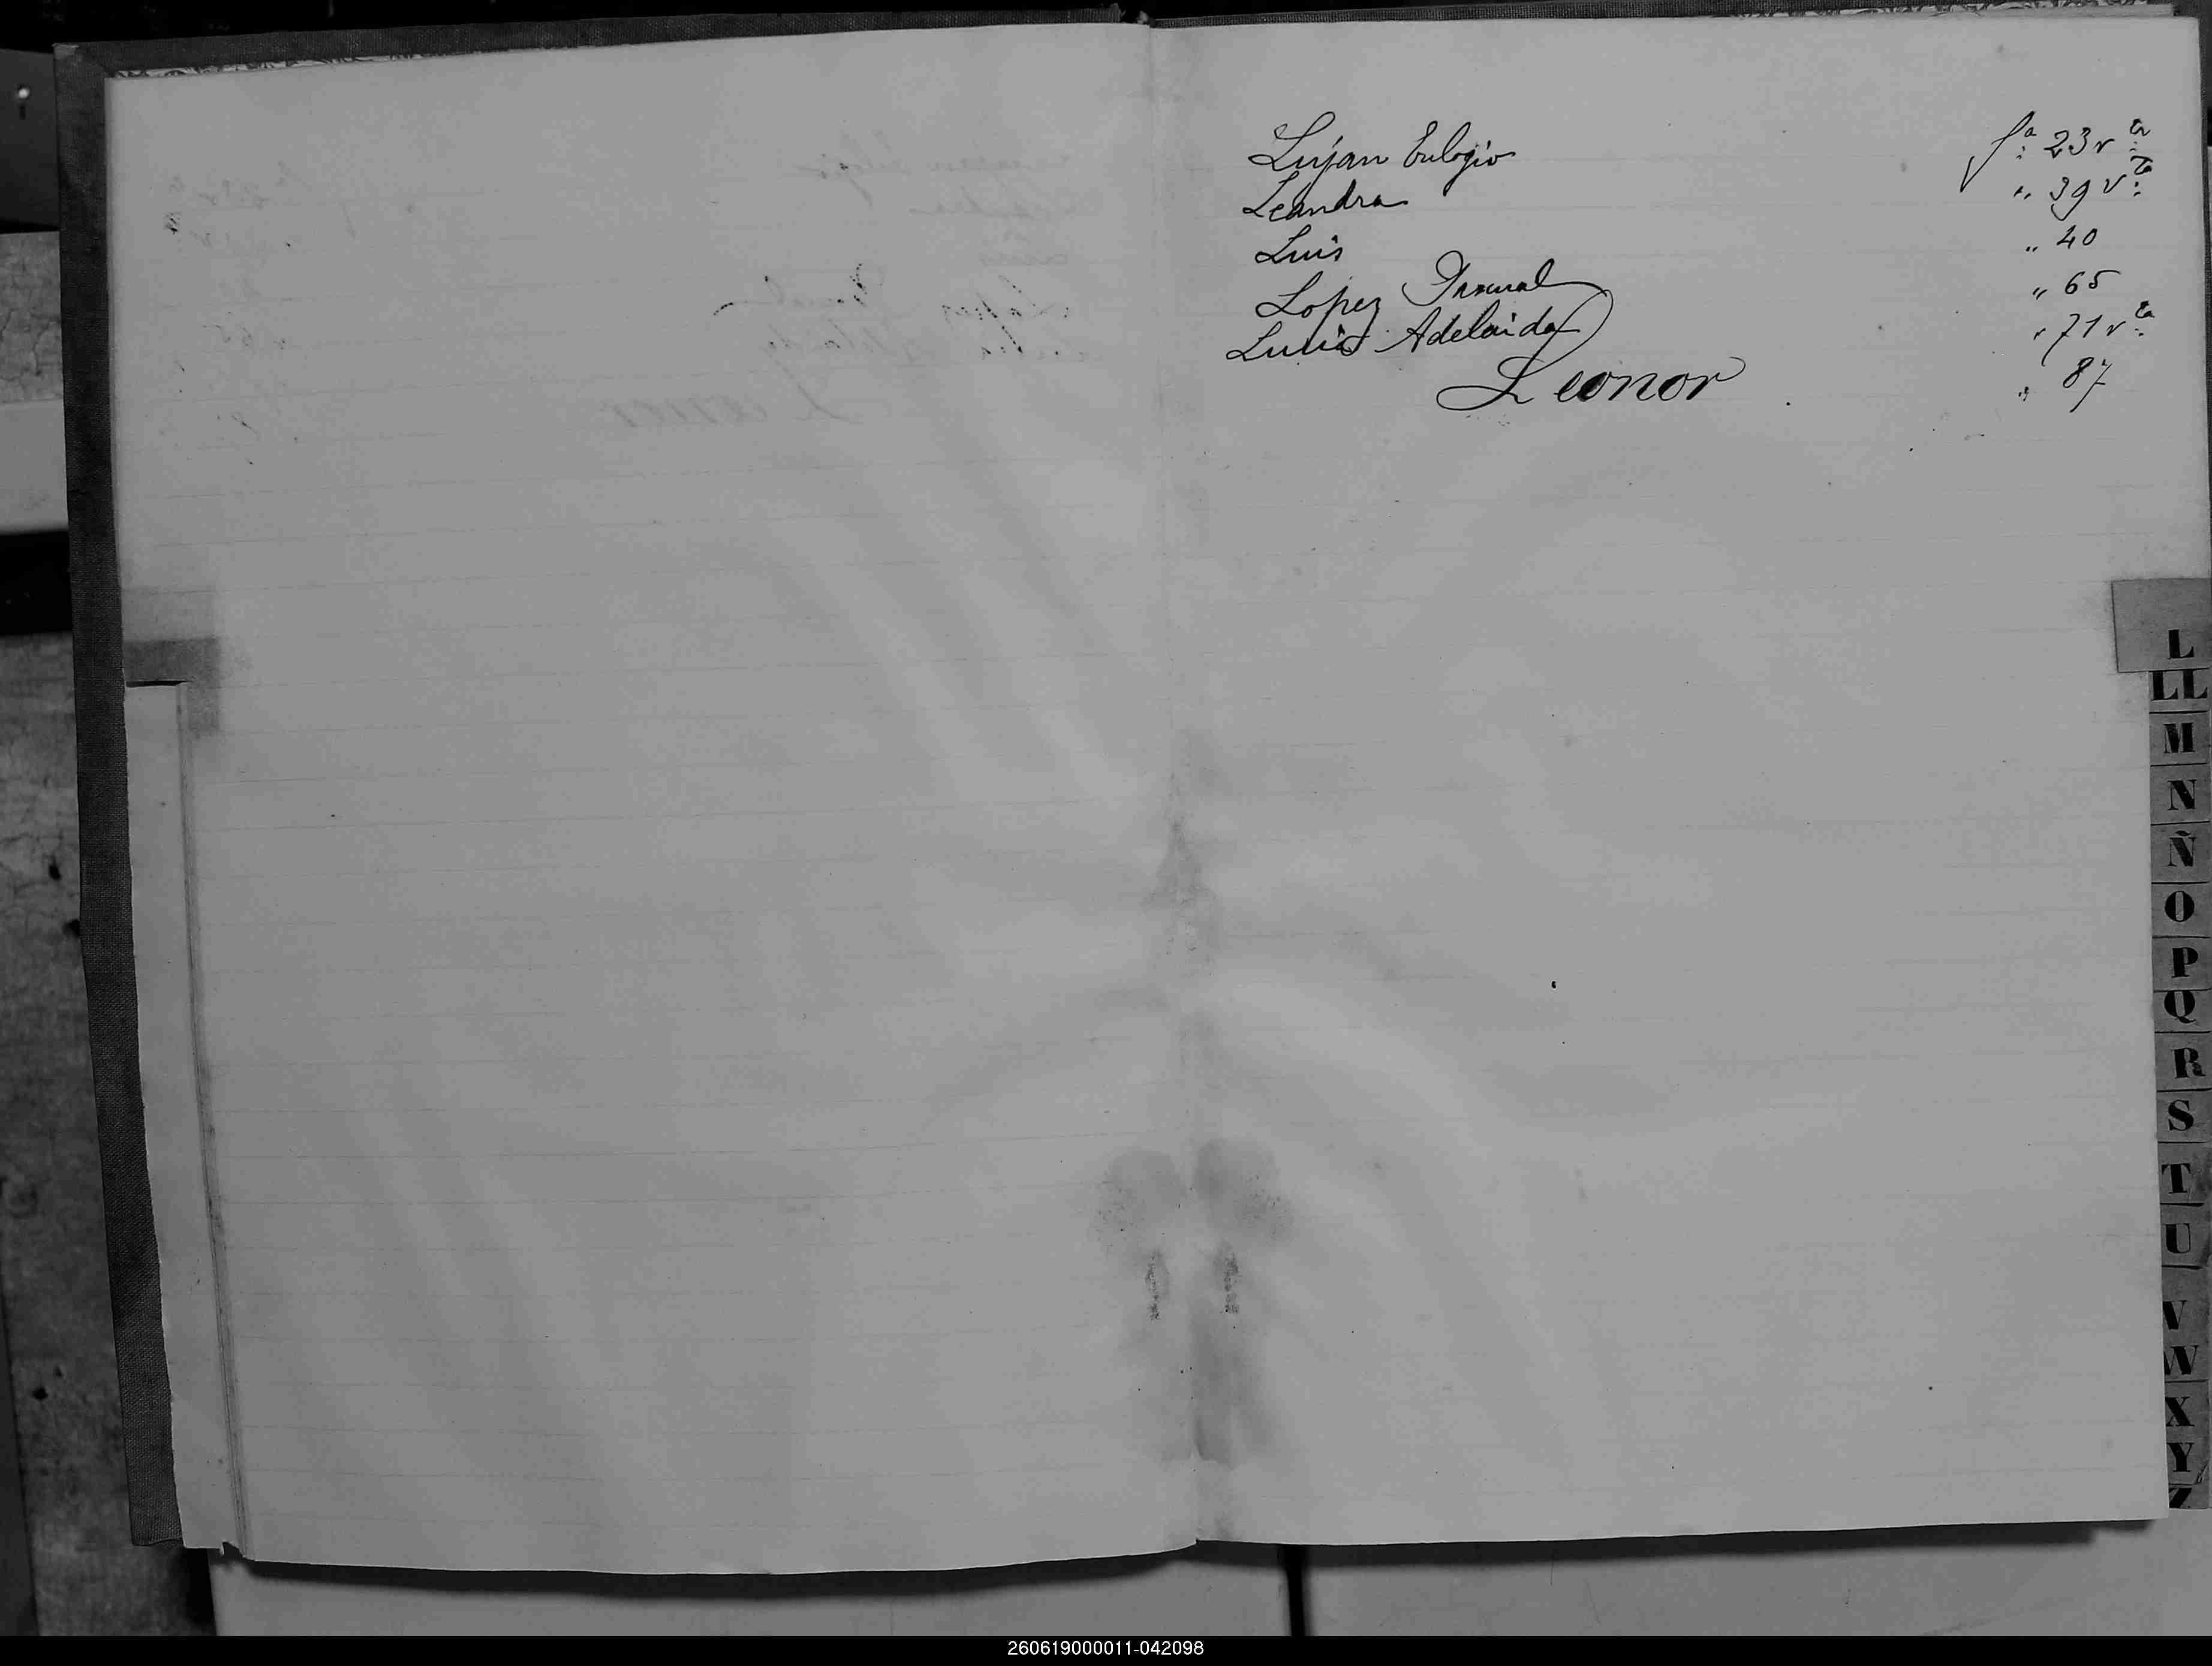 Lujan Eulogio fª: 23 vta:
Leandra " 39 vta:
Luis " 40
Lopez Pascual " 65
Lucia Adelaida " 71 vta:
Leonor " 87
L
LL
M
N
Ñ
O
P
Q
R
S
T
U
V
W
X
Y
Z
260619000011-042098